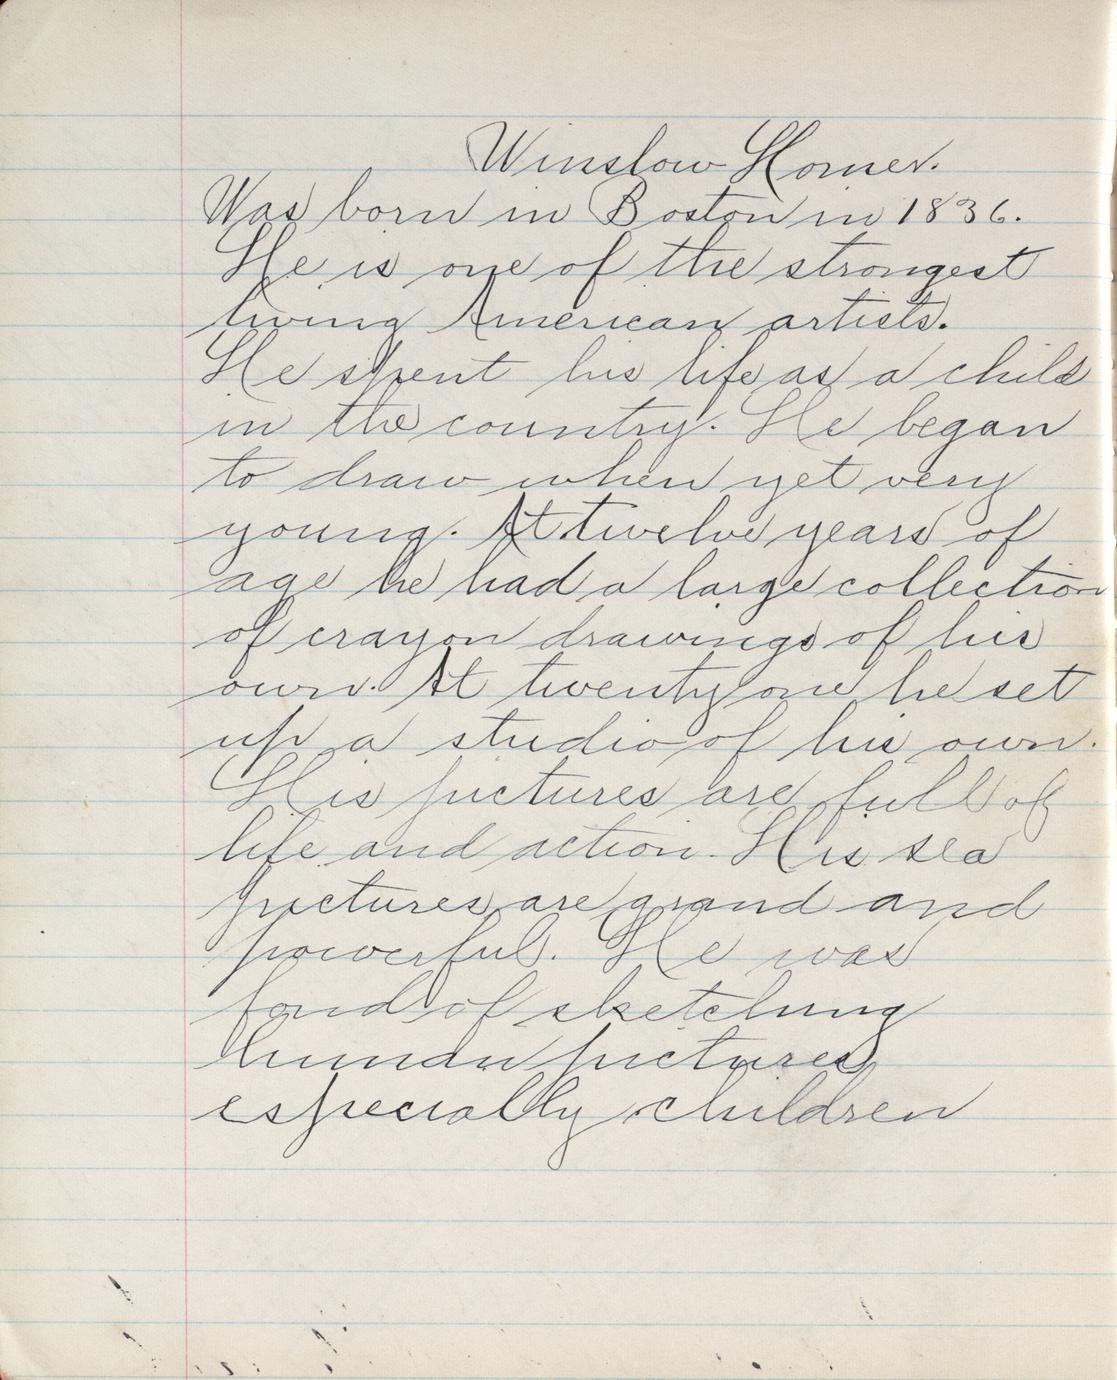 Winslow Homer.
Was born in Boston in 1836.
He is one of the strongest
living American artists.
He spent his life as a child
in the country. He began
to draw when yet very
young. At twelve years of
age he had a large collection
of crayon drawings of his
own. At twenty one he set
up a studio of his own.
His pictures are full of
life and action. His sea
pictures are grand and
powerful. He was
fond of sketching
human pictures
especially children